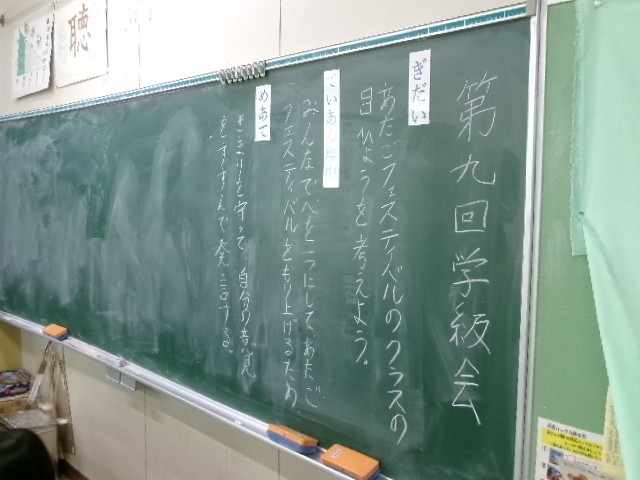 第九回学級会
ぎだい
あたごフェスティバルのクラスの
目ひょうを考えよう。
みんなで心を一つにして、あたご
フェスティバルをもり上げるため
めあて
きまりを守って、自分の意見
をすすんで発言する。
聴